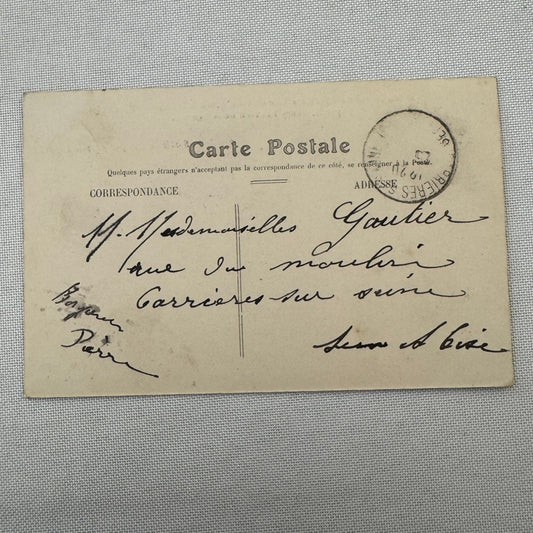 Carte Postale
Quelques pays étrangers n'acceptant pas la correspondance de ce côté, se renseigner à la Poste.
CORRESPONDANCE
ADRESSE
M. Mesdemoiselles Gautier
rue du moulin
Carrières sur seine
Seine et Oise
Bonjour
Pierre
RRIERES S